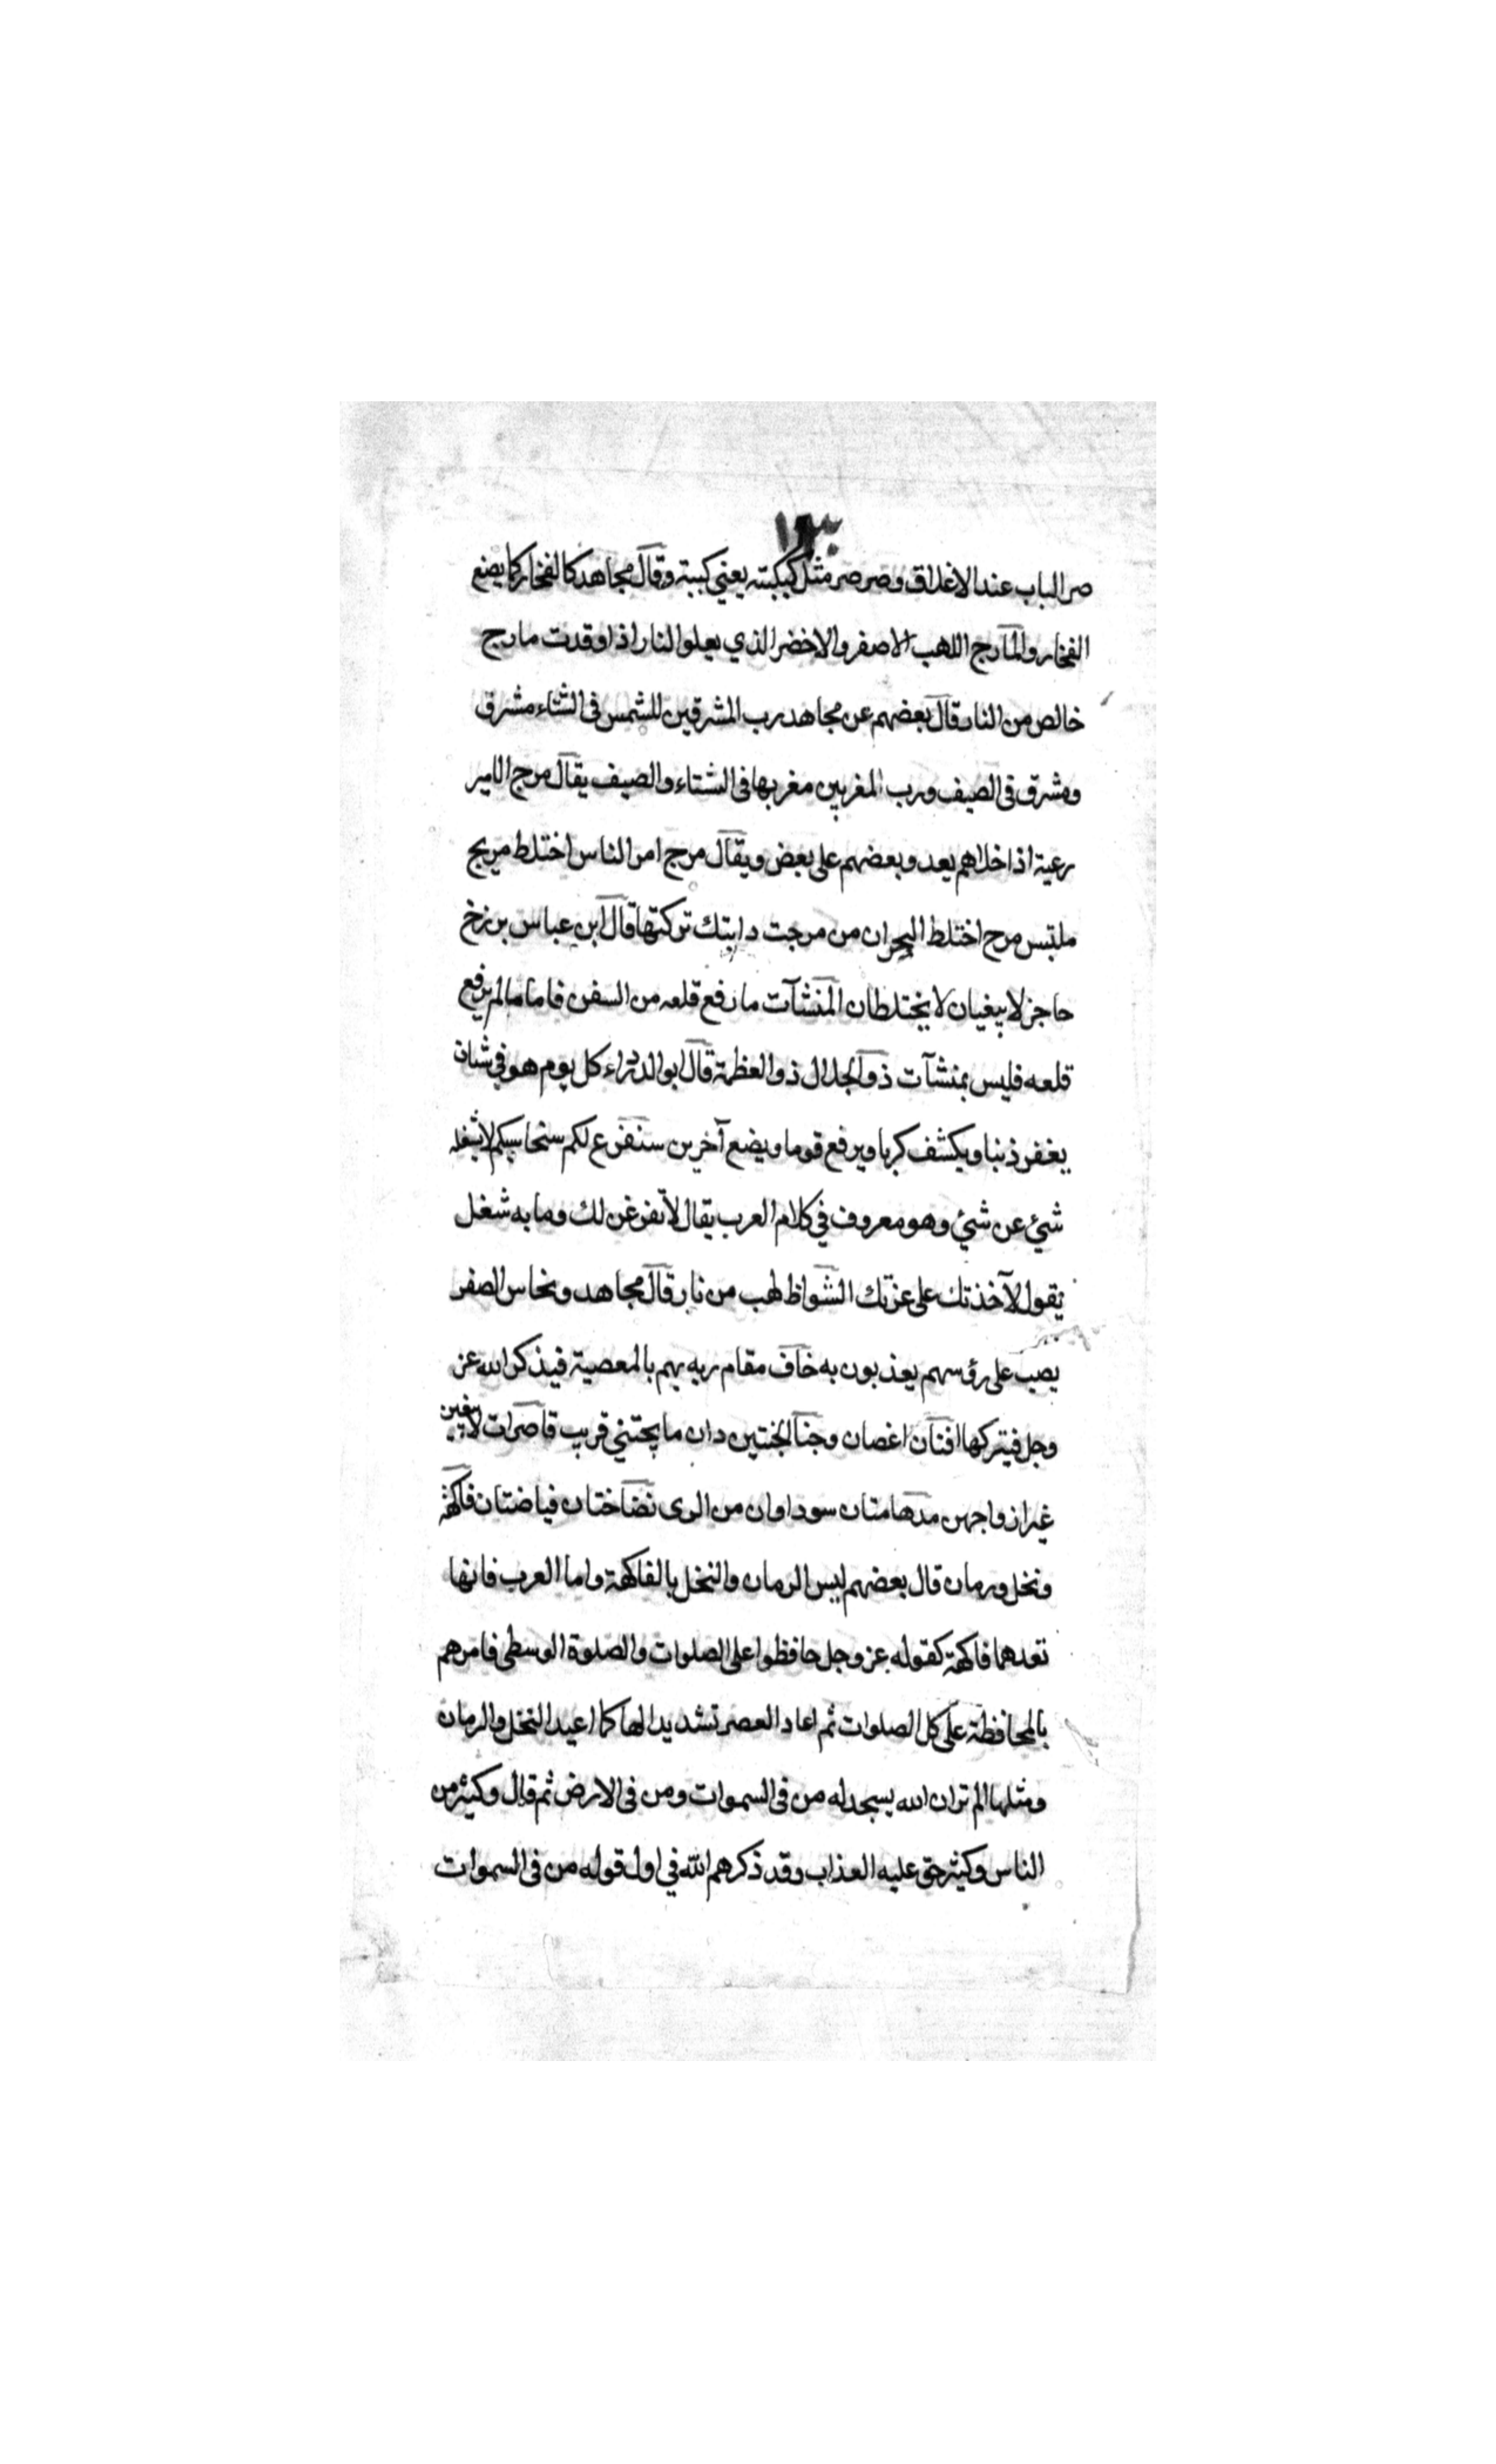 صر الباب عند الاغلاق وصرصر مثل كبكبته يعني كببته وقال مجاهد كالفخار كما يصنع
الفخار والمارج اللهب الاصفر والاخضر الذي يعلو النار اذا اوقدت مارج
خالص من النار قال بعضهم عن مجاهد رب المشرقين للشمس في الشتاء مشرق
ومشرق في الصيف ورب المغربين مغربها في الشتاء والصيف يقال مرج الامير
رعية اذا خلاهم يعدو بعضهم على بعض ويقال مرج امر الناس اختلط مريج
ملتبس مرج اختلط البحران من مرجت دابتك تركتها قال ابن عباس برزخ
حاجز لا يبغيان لا يختلطان المنشآت ما رفع قلعه من السفن فاما ما لم يرفع
قلعه فليس بمنشآت ذو الجلال ذو العظمة قال ابو الدرداء كل يوم هو في شان
يغفر ذنبا ويكشف كربا ويرفع قوما ويضع آخرين سنفرغ لكم سنحاسبكم لا يشغله
شئ عن شئ وهو معروف في كلام العرب يقال لاتفرغن لك وما به شغل
يقول لآخذتك على غرتك الشواظ لهب من نار قال مجاهد ونحاس الصفر
يصب على رؤسهم يعذبون به خاف مقام ربه يهم بالمعصية فيذكر الله عز
وجل فيتركها افنان اغصان وجنا الجنتين دان ما يجتني قريب قاصرات لا يبغين
غير ازواجهن مدهامتان سوداوان من الرى نضاختان فياضتان فاكهة
ونخل ورمان قال بعضهم ليس الرمان والنخل بالفاكهة واما العرب فانها
تعدهما فاكهة كقوله عز وجل حافظوا على الصلوات والصلوة الوسطى فامرهم
بالمحافظة على كل الصلوات ثم اعاد العصر تشديدا لها كما اعيد النخل والرمان
ومثلها الم تر ان الله يسجد له من في السموات ومن في الارض ثم قال وكثير من
الناس وكثير حق عليه العذاب وقد ذكرهم الله في اول قوله من في السموات